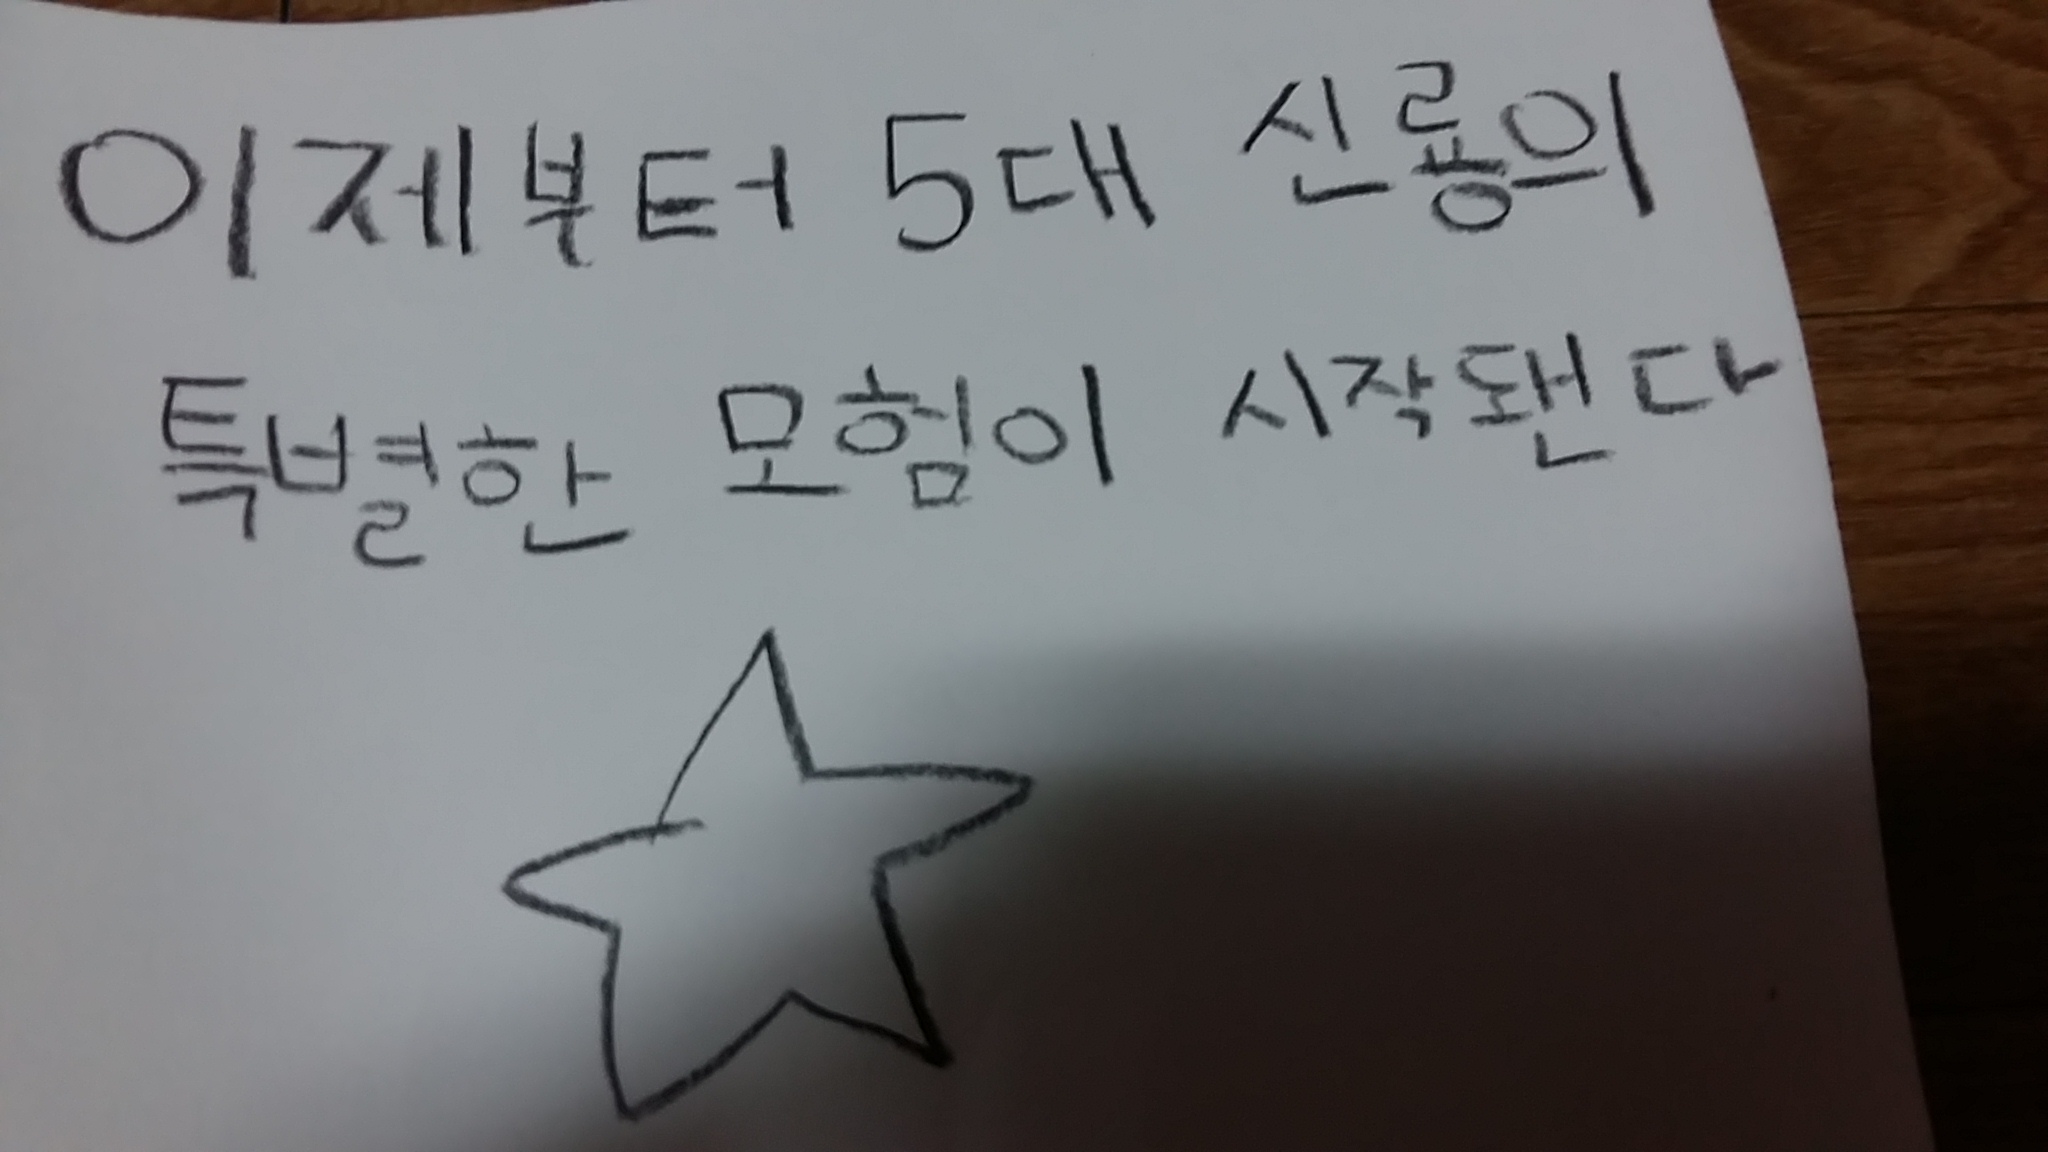 이제부터 5대 신룡의
특별한 모험이 시작됀다